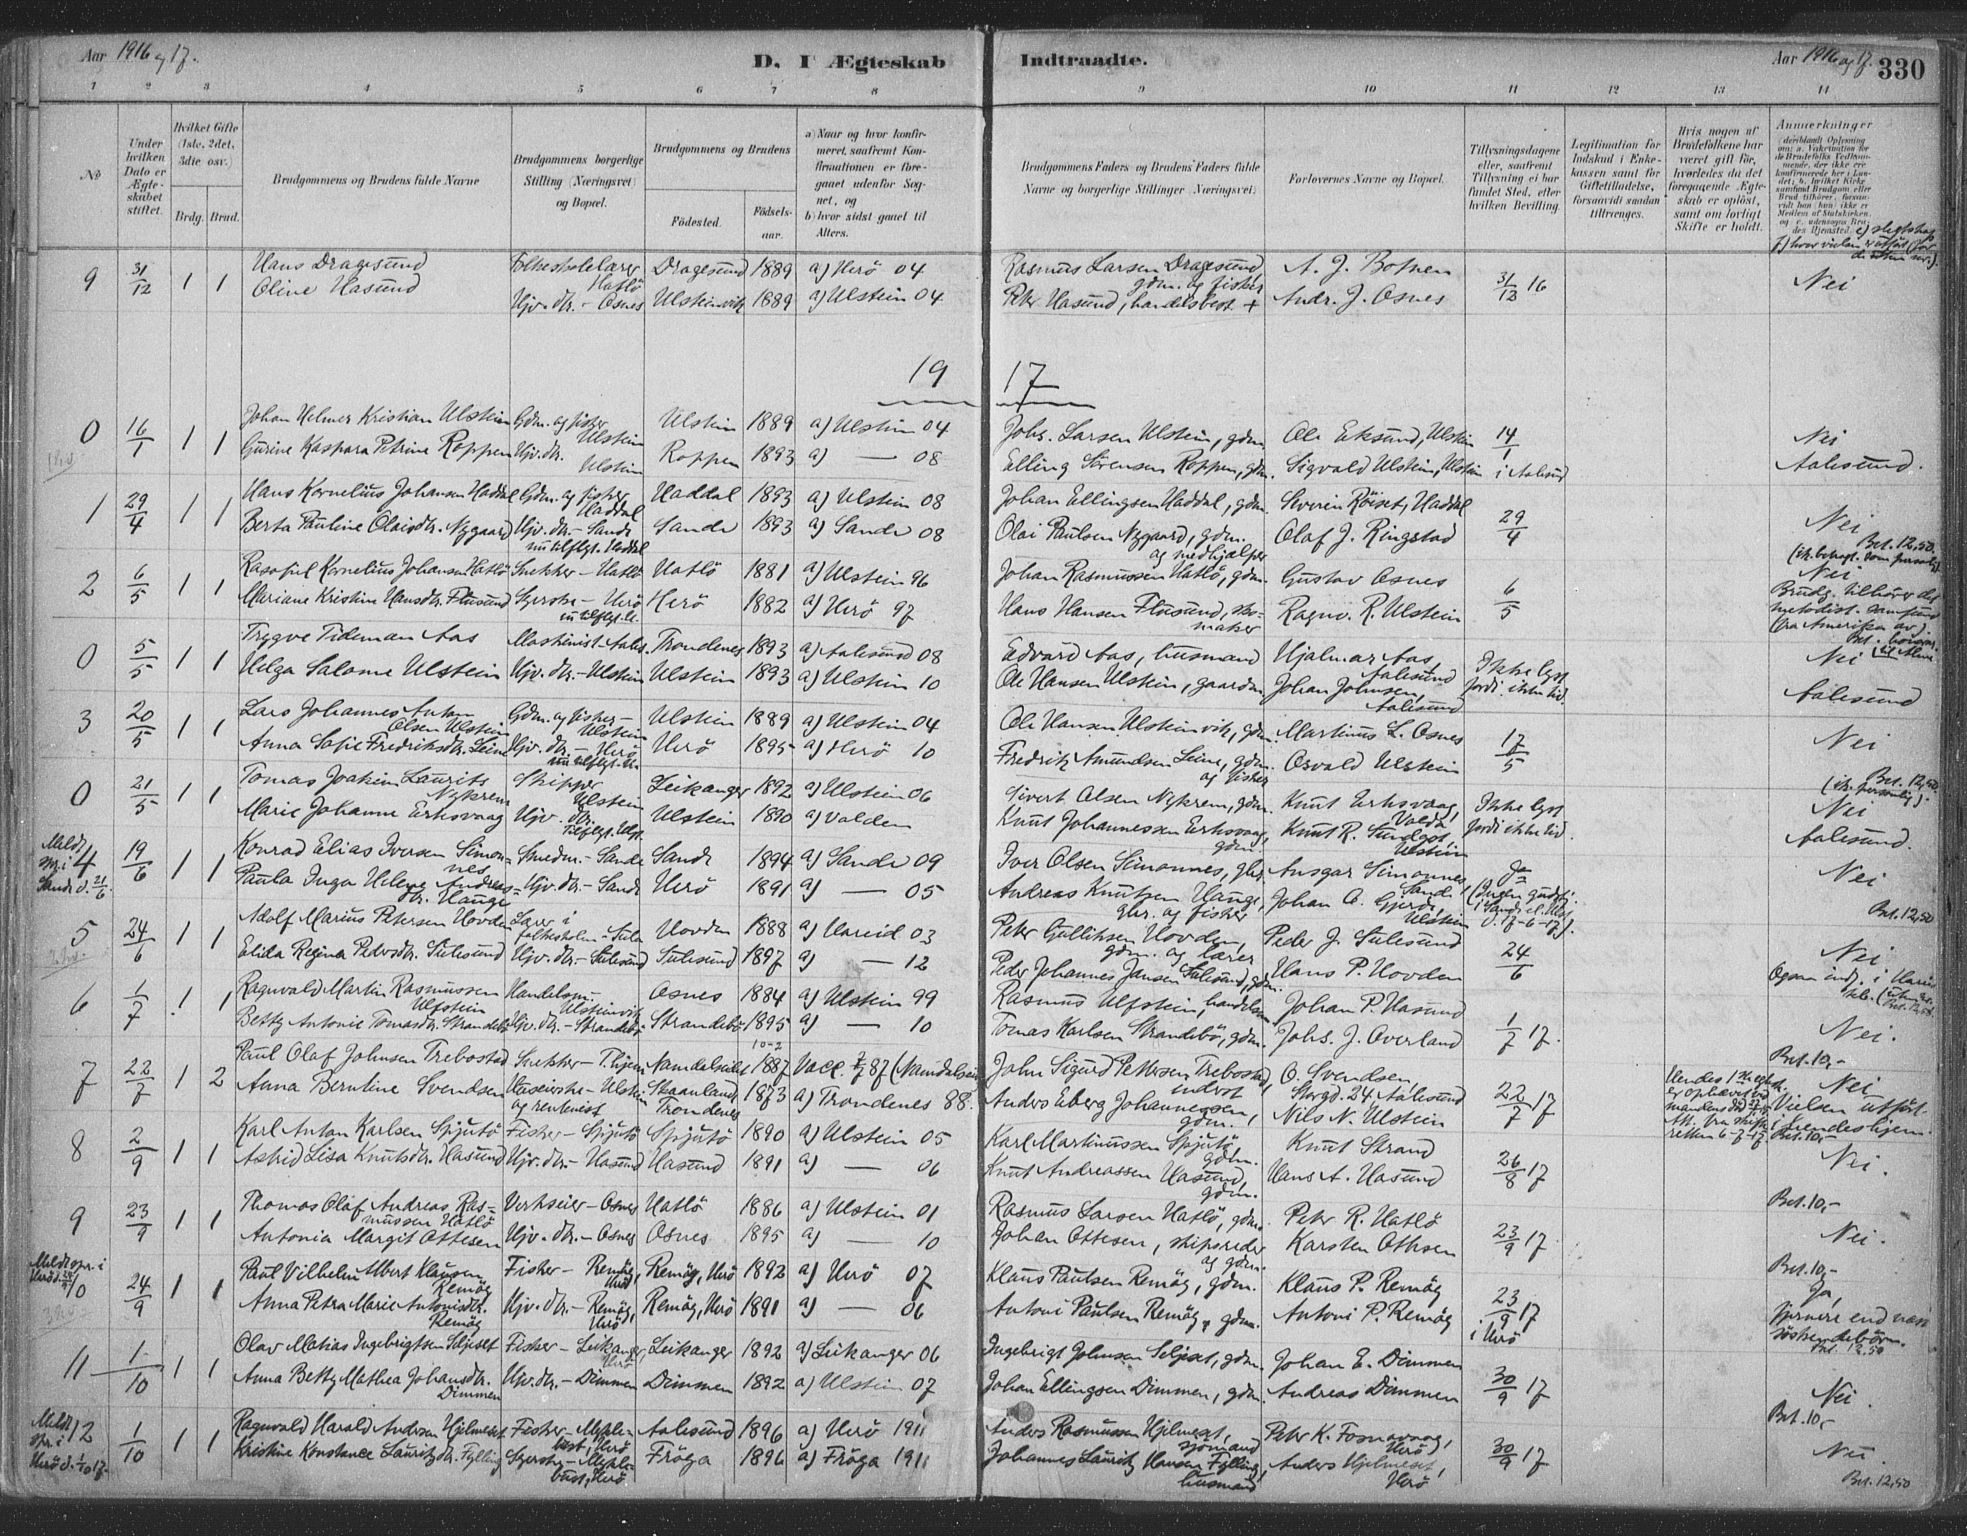 Aar 1916 og 17.
D. I Ægteskab Indtraadte.
Aar 1916 og 17. 330
1 2 3 4 5 6 7 8 9 10 11 12 13 14
No
Under hvilken Dato er Ægteskabet stiftet.
Hvilket Gifte (1ste, 2det, 3die osv.)
Brdg. Brud.
Brudgommens og Brudens fulde Navne
Brudgommens borgerlige Stilling (Næringsvei) og Bopæl.
Brudgommens og Brudens
Fødested. Fødselsaar.
a) Naar og hvor konfirmeret, saafremt Konfirmationen er foregaaet udenfor Sognet, og
b) hvor sidst gaaet til Alters.
Brudgommens Faders og Brudens Faders fulde Navne og borgerlige Stillinger (Næringsvei).
Forlovernes Navne og Bopæl.
Tillysningsdagene eller, saafremt Tillysning ei har fundet Sted, efter hvilken Bevilling.
Legitimation for Indskud i Enkekassen samt for Giftetilladelse, forsaavidt saadan tiltrænges.
Hvis nogen af Brudefolkene har været gift før, hvorledes da det foregaaende Ægteskab er opløst, samt om lovligt Skifte er holdt.
Anmerkninger
9 31/12 1 1 Hans Dragesund Folkeskolelærer Hatlö Dragesund 1889 a) Herö 04 Rasmus Larsen Dragesund, gdm. og fisker A. J. Botnen 31/12 16 Nei
Oline Hasund Hjv. dtr. - Osnes Ulsteinvik 1889 a) Ulstein 04 Peter Hasund, handelsbest + Andr. J. Osnes
1917
0 16/1 1 1 Johan Helmer Kristian Ulstein Gdm. og fisker Ulstein Ulstein 1889 a) Ulstein 04 Johs. Larsen Ulstein, gdm. Ole Eksund, Ulstein 14/1 Nei
Gurine Kaspara Petrine Roppen Hjv. dtr. Ulstein Roppen 1893 a) — 08 Elling Sörensen Roppen, gdm. Sigvald Ulstein, Ulstein i Aalesund Aalesund.
1 29/4 1 1 Hans Kornelius Johansen Haddal Gdm. og fisker Haddal Haddal 1893 a) Ulstein 08 Johan Ellingsen Haddal, gdm. Severin Röiset, Haddal 29/4 Nei
Berta Pauline Olaisdtr. Nygaard Hjv. dtr. - Sande nu tilflyt. Haddal Sande 1893 a) Sande 08 Olai Paulsen Nygaard, gdm. og medhjælper Olaf J. Ringstad Bet. 12,50.
2 6/5 1 1 Kornelius Johansen Hatlö Snekker - Hatlö Hatlö 1881 a) Ulstein 96 Johan Rasmussen Hatlö, gdm. Gustav Osnes 6/5 Nei
Mariane Kristine Hansdtr. Flusund Syerske - Herö Herö 1882 a) Herö 97 Hans Hansen Flusund, skomaker Ragnv. R. Ulstein Brudg. tilhörer det metodist. samfund (fra Amerika av).
0 5/5 1 1 Trygve Tideman Aas Maskinist - Aales. Trondenes 1893 a) Aalesund 08 Edvard Aas, husmand Hjalmar Aas, Aalesund Ikke lyst Nei
Helga Salome Ulstein Hjv. dtr. - Ulstein Ulstein 1893 a) Ulstein 10 Ole Hansen Ulstein, gaardm. Johan Johnsen, Aalesund fordi ikke tid. Aalesund
3 20/5 1 1 Lars Johannes Anton Olsen Ulstein Gdm. og fisker - Ulstein Ulstein 1889 a) Ulstein 04 Ole Hansen Ulsteinvik, gdm. Martinus L. Osnes 17/5 Nei
Anna Sofie Fredriksdtr. Leine Hjv. dtr. - Herö Herö 1895 a) Herö 10 Fredrik Amundsen Leine, gdm. og fisker Osvald Ulstein Bet. 12,50
0 21/5 1 1 Tomas Joakim Laurits Nykrem Skipper Ulstein Leikanger 1892 a) Ulstein 06 Sivert Olsen Nykrem, gdm. Knut Eiksvaag, Volda Ikke lyst Nei
Marie Johanne Eiksvaag Hjv. dtr. Ulstein 1890 a) Volden Knut Johannessen Eiksvaag, gdm. Knut R. Sundgot, Ulstein fordi ikke tid. Aalesund.
Meldt spr. i Sande d. 21/6. 4 19/6 1 1 Konrad Elias Iversen Simonnes Smedm. - Sande Sande 1894 a) Sande 09 Iver Olsen Simonnes, gbr. Ansgar Simonnes, Sande Ja Nei
Paula Inga Helene Andreasdtr. Hauge Hjv. dtr. - Sande Herö 1891 a) — 05 Andreas Knutsen Hauge, gbr. og fisker Johan A. Gjerde, Ulstein Bet. 12,50
5 24/6 1 1 Adolf Marius Petersen Hovden Lærer i folkeskolen Hovden 1888 a) Hareid 03 Peter Gulliksen Hovden, gdm. og lærer Peder J. Sulesund 24/6 Nei
Elida Regina Pedersdtr. Sulesund Hjv. dtr. - Sulesund Sulesund 1897 a) — 12 Peder Johannes Jansen Sulesund, gdm. Hans P. Hovden
6 1/7 1 1 Ragnvald Martin Rasmussen Ulfstein Handelsm. Ulsteinvik Osnes 1884 a) Ulstein 99 Rasmus Ulfstein, handelsm. Johan P. Hasund 1/7 17. Nei.
Betty Antonie Tomasdtr. Strandebö Hjv. dtr. - Strandebö Strandebö 1895 a) — 10 Tomas Karlsen Strandebö, gdm. Johs. J. Overland Bet. 10,-
7 22/7 1 2 Paul Olaf Johnsen Trebostad Snekker - T.hjem Namdalseidet 1887 Vacc. 7/7 87 (Namdalseid John Sigurd Pettersen Trebostad, inderst O. Svendsen Storgd. 24, Aalesund 22/7 17 Nei
Anna Berntine Svendsen Ulstein og rentenist Skaanland Trondenes 1873 a) Trondenes 88. Anders Eberg Johannessen, gdm. Nils N. Ulstein Bet. 10,-
8 2/9 1 1 Karl Anton Karlsen Spjutö Fisker - Spjutö Spjutö 1890 a) Ulstein 05 Karl Martinussen Spjutö, gdm. Knut Strand 26/8 17 Nei.
Astrid Lisa Knutsdtr. Hasund Hjv. dtr. - Hasund Hasund 1891 a) — 06 Knut Andreassen Hasund, gdm. Hans A. Hasund Bet. 10,-
9 23/9 1 1 Thomas Olaf Andreas Rasmussen Hatlö Verkseier - Osnes Hatlö 1886 a) Ulstein 01 Rasmus Larsen Hatlö, gdm. Peter R. Hatlö 23/9 17 Nei.
Antonia Margit Ottesen Hjv. dtr. - Osnes Osnes 1895 a) — 10 Johan Ottesen, skipsreder og gdm. Karsten Ottesen Bet. 10,-
Meldt spr. i Herö 10 24/9 1 1 Paul Vilhelm Albert Klausen Remöy Fisker - Remöy, Herö Remöy, Herö 1892 a) Herö 07 Klaus Paulsen Remöy, gdm. Klaus P. Remöy 23/9 17 i Herö Ja,
Anna Petra Marie Antonisdtr. Remöy Hjv. dtr. - Remöy, Herö Remöy, Herö 1891 a) — 06 Antoni Paulsen Remöy, gdm. Antoni P. Remöy fjernere end næstsöskendebörn. Bet. 12,50
11 1/10 1 1 Olav Matias Ingebrigtsen Seljeset Fisker - Leikanger, Herö Leikanger 1892 a) Leikanger 06 Ingebrigt Johnsen Seljeset, gdm. Johan E. Dimmen 30/9 17 Nei.
Anna Betty Mathea Johansdtr. Dimmen Hjv. dtr. - Dimmen Dimmen 1892 a) Ulstein 07 Johan Ellingsen Dimmen, gdm. Andreas Dimmen Bet. 10,-
Meldt spr. i Herö d. 1/10 17. 12 1/10 1 1 Ragnvald Harald Andersen Hjelmeset Fisker - Myklebust, Herö Aalesund 1896 a) Herö 1911 Anders Rasmussen Hjelmeset, sjömand Peter K. Fosnavaag, Herö 30/9 17 Nei.
Kristine Konstance Lauritzdtr. Fylling Syerske - Myklebust, Herö Fröya 1896 a) Fröya 1911 Johannes Lauritz Hansen Fylling, husmand Anders Hjelmeset, Herö Bet. 12,50